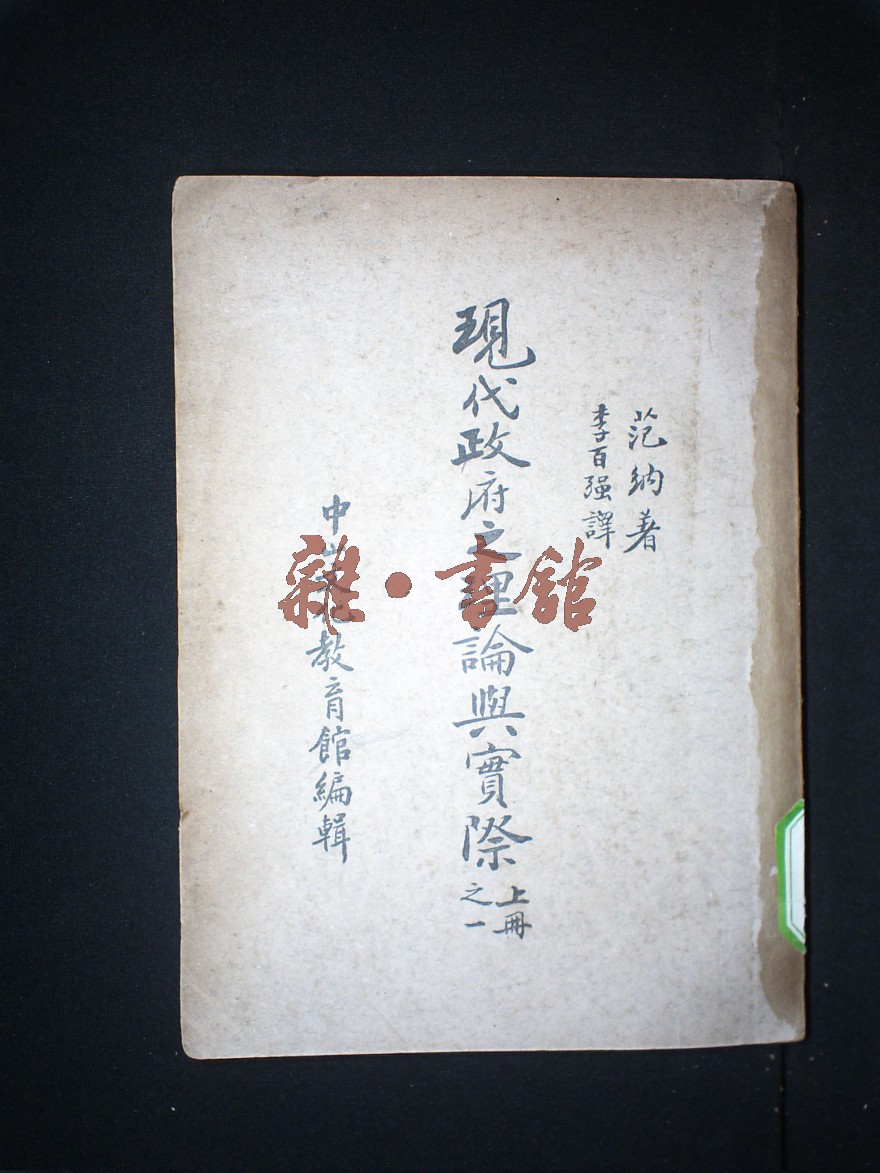 范納著
李百强譯
現代政府之理論與實際
上冊
之一
中山文化教育館編輯
雜•書館